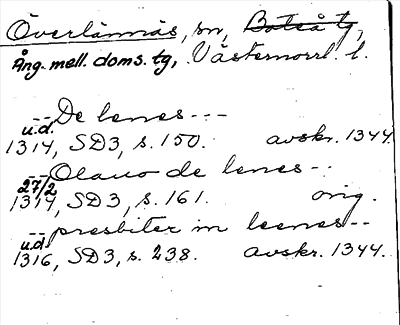 Överlännäs, sn, Boteå tg,
Ång. mell. doms. tg, Västernorrl. l.
-- De lenes ---
u.d.
1314, SD3, s. 150. avskr. 1344.
-- Olauo de lenes --
27/2
1314, SD3, s. 161. orig.
-- presbiter in leenes --
u.d.
1316, SD3, s. 238. avskr. 1344.